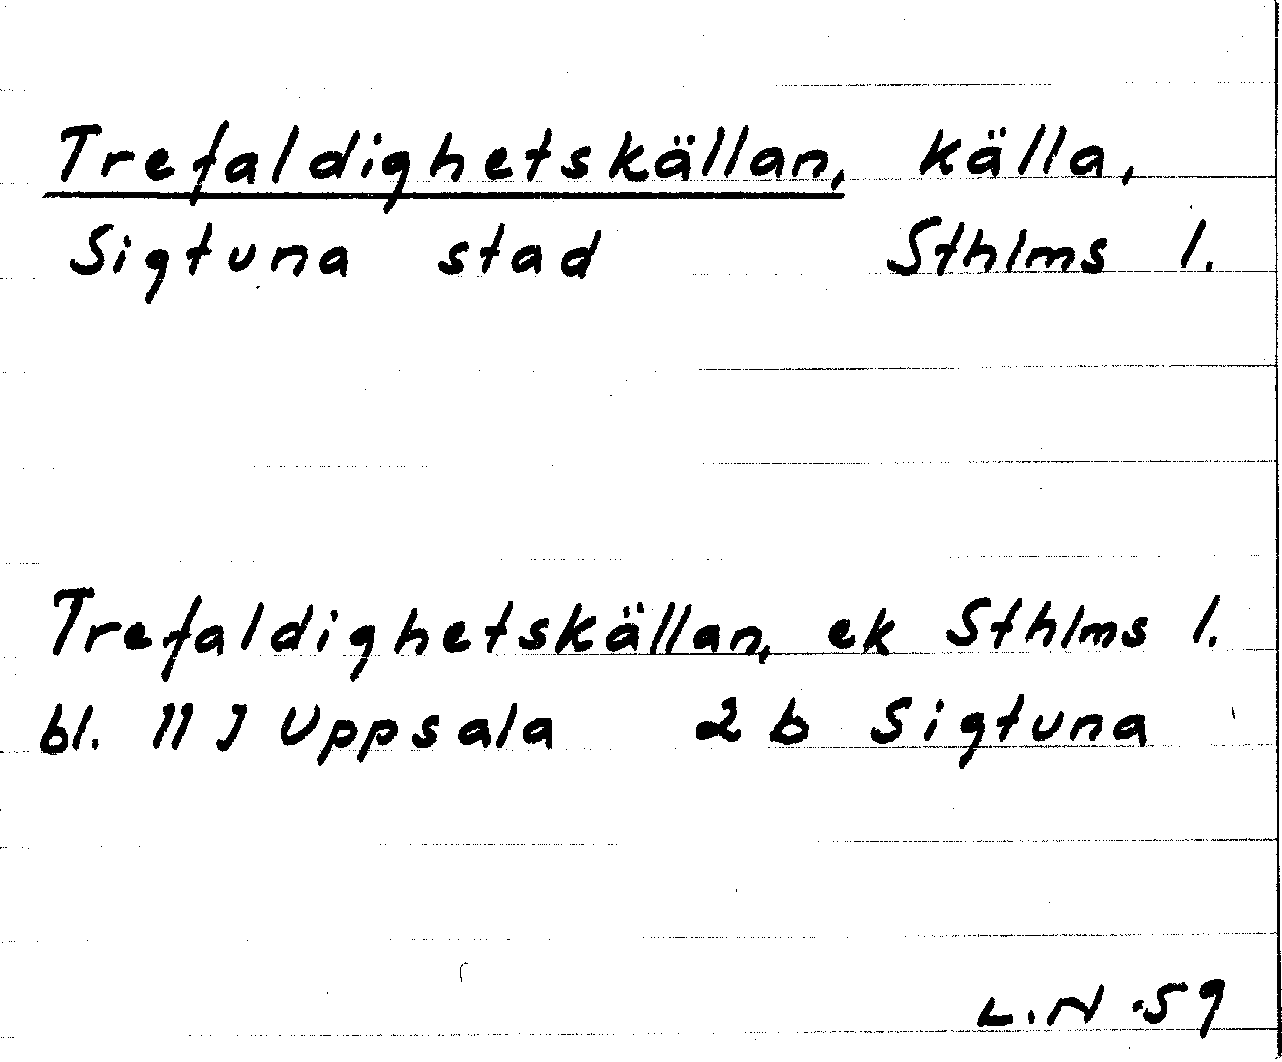 Trefaldighetskällan, källa,
Sigtuna stad Sthlms l.
Trefaldighetskällan, ek Sthlms l.
bl. 11 J Uppsala 2 b Sigtuna
L.N.59